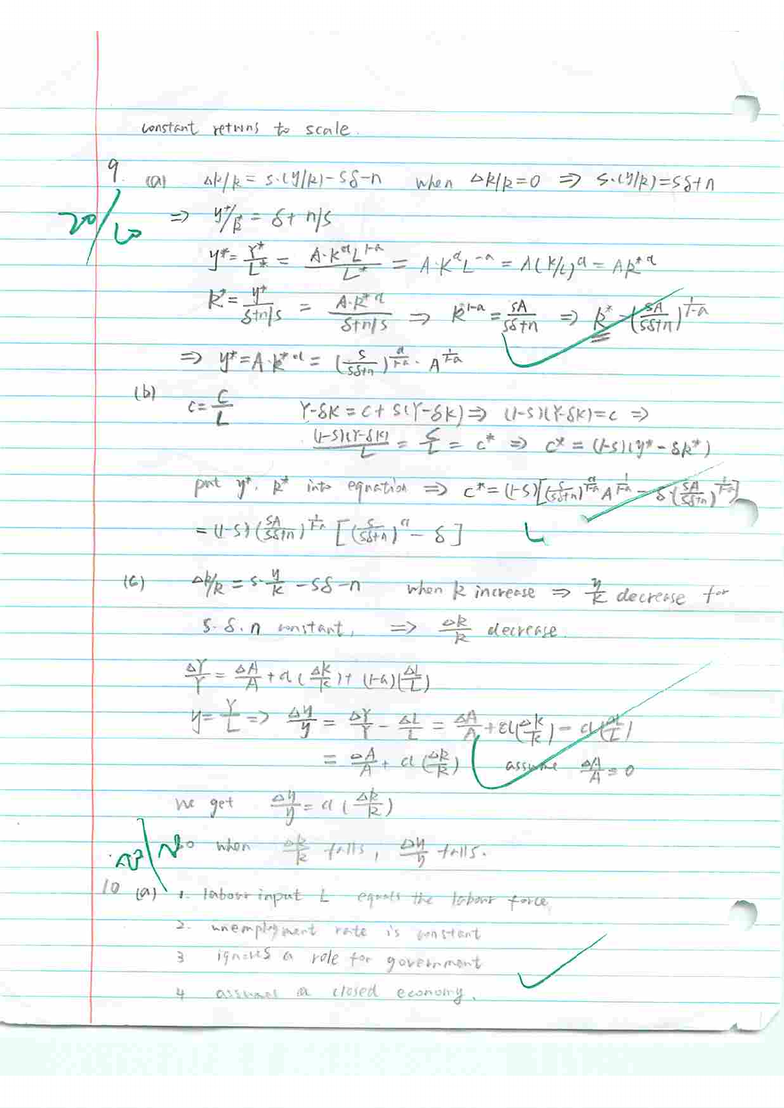 constant returns to scale.
9. (a) Δk/k = s·(y/k)-sδ-n when Δk/k=0 ⇒ s·(y/k)=sδ+n
20/20
⇒ y*/k = δ + n/s
y* = Y*/L* = A·K^α L^1-α / L* = A·K^α L^-α = A(K/L)^α = Ak*^α
k* = y*/(δ+n/s) = A·k*^α/(δ+n/s) ⇒ k^1-α = sA/(sδ+n) ⇒ k* = (sA/(sδ+n))^(1/(1-α))
⇒ y* = A·k*^α = (s/(sδ+n))^(α/(1-α)) · A^(1/(1-α))
(b) c = C/L Y-δK = C + S(Y-δK) ⇒ (1-S)(Y-δK) = C ⇒
(1-S)(Y-δK)/L = C/L = c* ⇒ c* = (1-S)(y* - δk*)
put y*, k* into equation ⇒ c* = (1-S)[(s/(sδ+n))^(α/(1-α)) A^(1/(1-α)) - δ·(sA/(sδ+n))^(1/(1-α))]
= (1-S)(sA/(sδ+n))^(1/(1-α)) [(s/(sδ+n))^α - δ]
(c) Δk/k = s·y/k - sδ-n when k increase ⇒ y/k decrease for
s. δ. n constant, ⇒ Δk/k decrease.
ΔY/Y = ΔA/A + α(ΔK/K) + (1-α)(ΔL/L)
y = Y/L ⇒ Δy/y = ΔY/Y - ΔL/L = ΔA/A + α(ΔK/K) - α(ΔL/L)
= ΔA/A + α(Δk/k) assume ΔA/A = 0
we get Δy/y = α(Δk/k)
so when Δk/k falls, Δy/y falls.
10 (a) 1. labour input L equals the labour force,
2. unemployment rate is constant
3 ignores a role for government
4 assumes a closed economy.